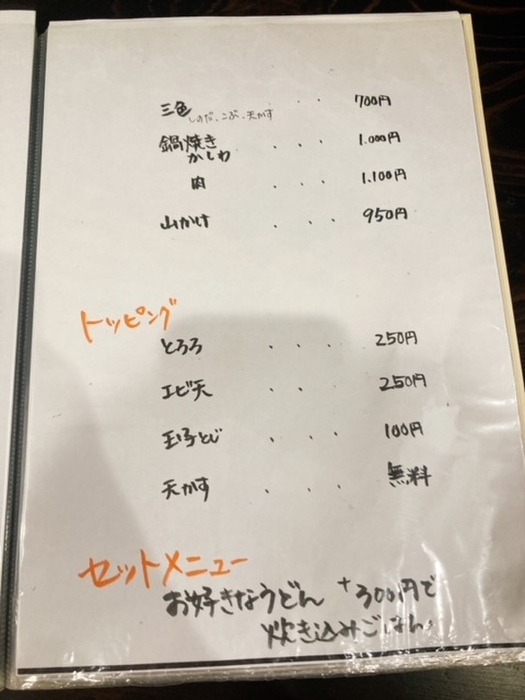 三色 ・・ 700円
しのだ、こぶ、天かす
鍋焼き ・・・ 1.000円
かしわ
肉 ・・・ 1.100円
山かけ ・・・ 950円
トッピング
とろろ ・・・ 250円
エビ天 ・・・ 250円
玉子とじ ・・・ 100円
天かす ・・・ 無料
セットメニュー
お好きなうどん +300円で
炊き込みごはん